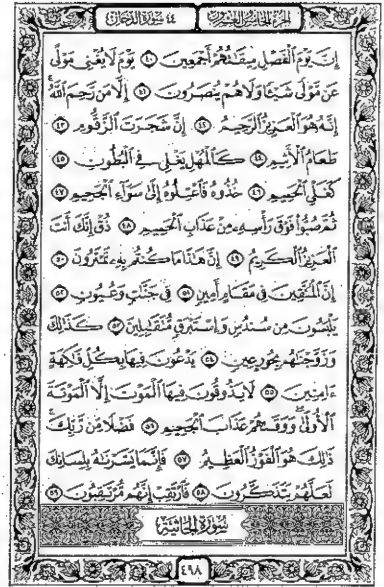 الجزء الخامس والعشرون ٤٤ سورة الدخان
إِنَّ يَوْمَ ٱلْفَصْلِ مِيقَٰتُهُمْ أَجْمَعِينَ ٤٠ يَوْمَ لَا يُغْنِى مَوْلًى
عَن مَّوْلًى شَيْـًٔا وَلَا هُمْ يُنصَرُونَ ٤١ إِلَّا مَن رَّحِمَ ٱللَّهُ ۚ
إِنَّهُۥ هُوَ ٱلْعَزِيزُ ٱلرَّحِيمُ ٤٢ إِنَّ شَجَرَتَ ٱلزَّقُّومِ ٤٣
طَعَامُ ٱلْأَثِيمِ ٤٤ كَٱلْمُهْلِ يَغْلِى فِى ٱلْبُطُونِ ٤٥
كَغَلْىِ ٱلْحَمِيمِ ٤٦ خُذُوهُ فَٱعْتِلُوهُ إِلَىٰ سَوَآءِ ٱلْجَحِيمِ ٤٧
ثُمَّ صُبُّوا۟ فَوْقَ رَأْسِهِۦ مِنْ عَذَابِ ٱلْحَمِيمِ ٤٨ ذُقْ إِنَّكَ أَنتَ
ٱلْعَزِيزُ ٱلْكَرِيمُ ٤٩ إِنَّ هَٰذَا مَا كُنتُم بِهِۦ تَمْتَرُونَ ٥٠
إِنَّ ٱلْمُتَّقِينَ فِى مَقَامٍ أَمِينٍ ٥١ فِى جَنَّٰتٍ وَعُيُونٍ ٥٢
يَلْبَسُونَ مِن سُندُسٍ وَإِسْتَبْرَقٍ مُّتَقَٰبِلِينَ ٥٣ كَذَٰلِكَ
وَزَوَّجْنَٰهُم بِحُورٍ عِينٍ ٥٤ يَدْعُونَ فِيهَا بِكُلِّ فَٰكِهَةٍ
ءَامِنِينَ ٥٥ لَا يَذُوقُونَ فِيهَا ٱلْمَوْتَ إِلَّا ٱلْمَوْتَةَ
ٱلْأُولَىٰ ۖ وَوَقَىٰهُمْ عَذَابَ ٱلْجَحِيمِ ٥٦ فَضْلًا مِّن رَّبِّكَ ۚ
ذَٰلِكَ هُوَ ٱلْفَوْزُ ٱلْعَظِيمُ ٥٧ فَإِنَّمَا يَسَّرْنَٰهُ بِلِسَانِكَ
لَعَلَّهُمْ يَتَذَكَّرُونَ ٥٨ فَٱرْتَقِبْ إِنَّهُم مُّرْتَقِبُونَ ٥٩
سورة الجاثية
٤٩٨